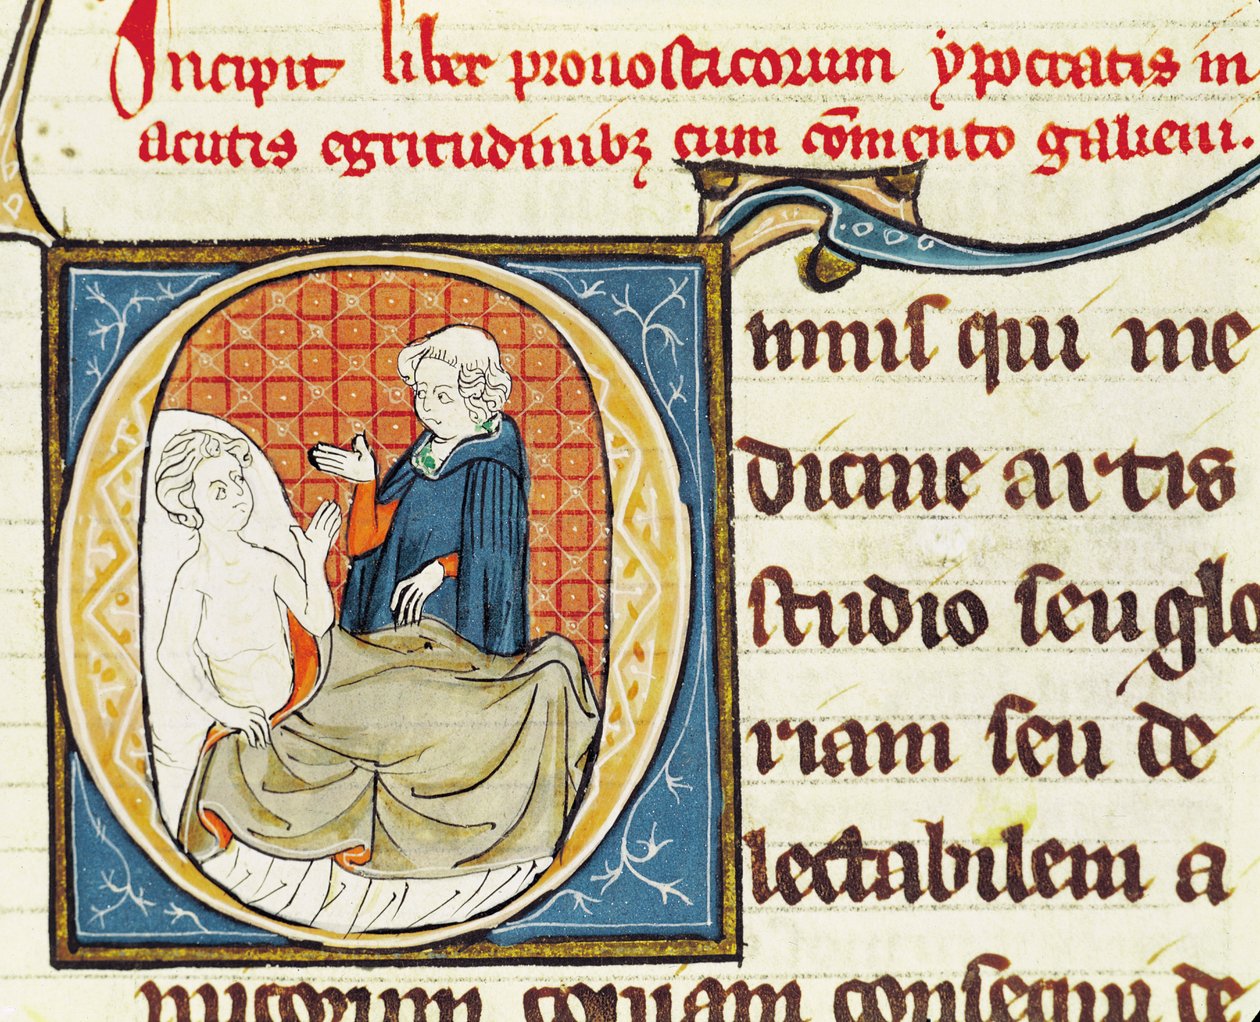 Incipit liber pronosticorum ypocratis in
acutis egritudinibꝫ cum cōmento galieni.
Omnis qui me
dicine artis
studio seu glo
riam seu de
lectabilem a
micorum copiam consequi de